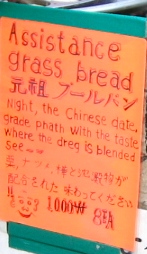 Assistance
grass bread
元祖 プールパン
Night, the Chinese date,
grade phath with the taste
where the dreg is blended
see
ナツメ、
配合された 味わってください
!! 1,000₩ 8개入